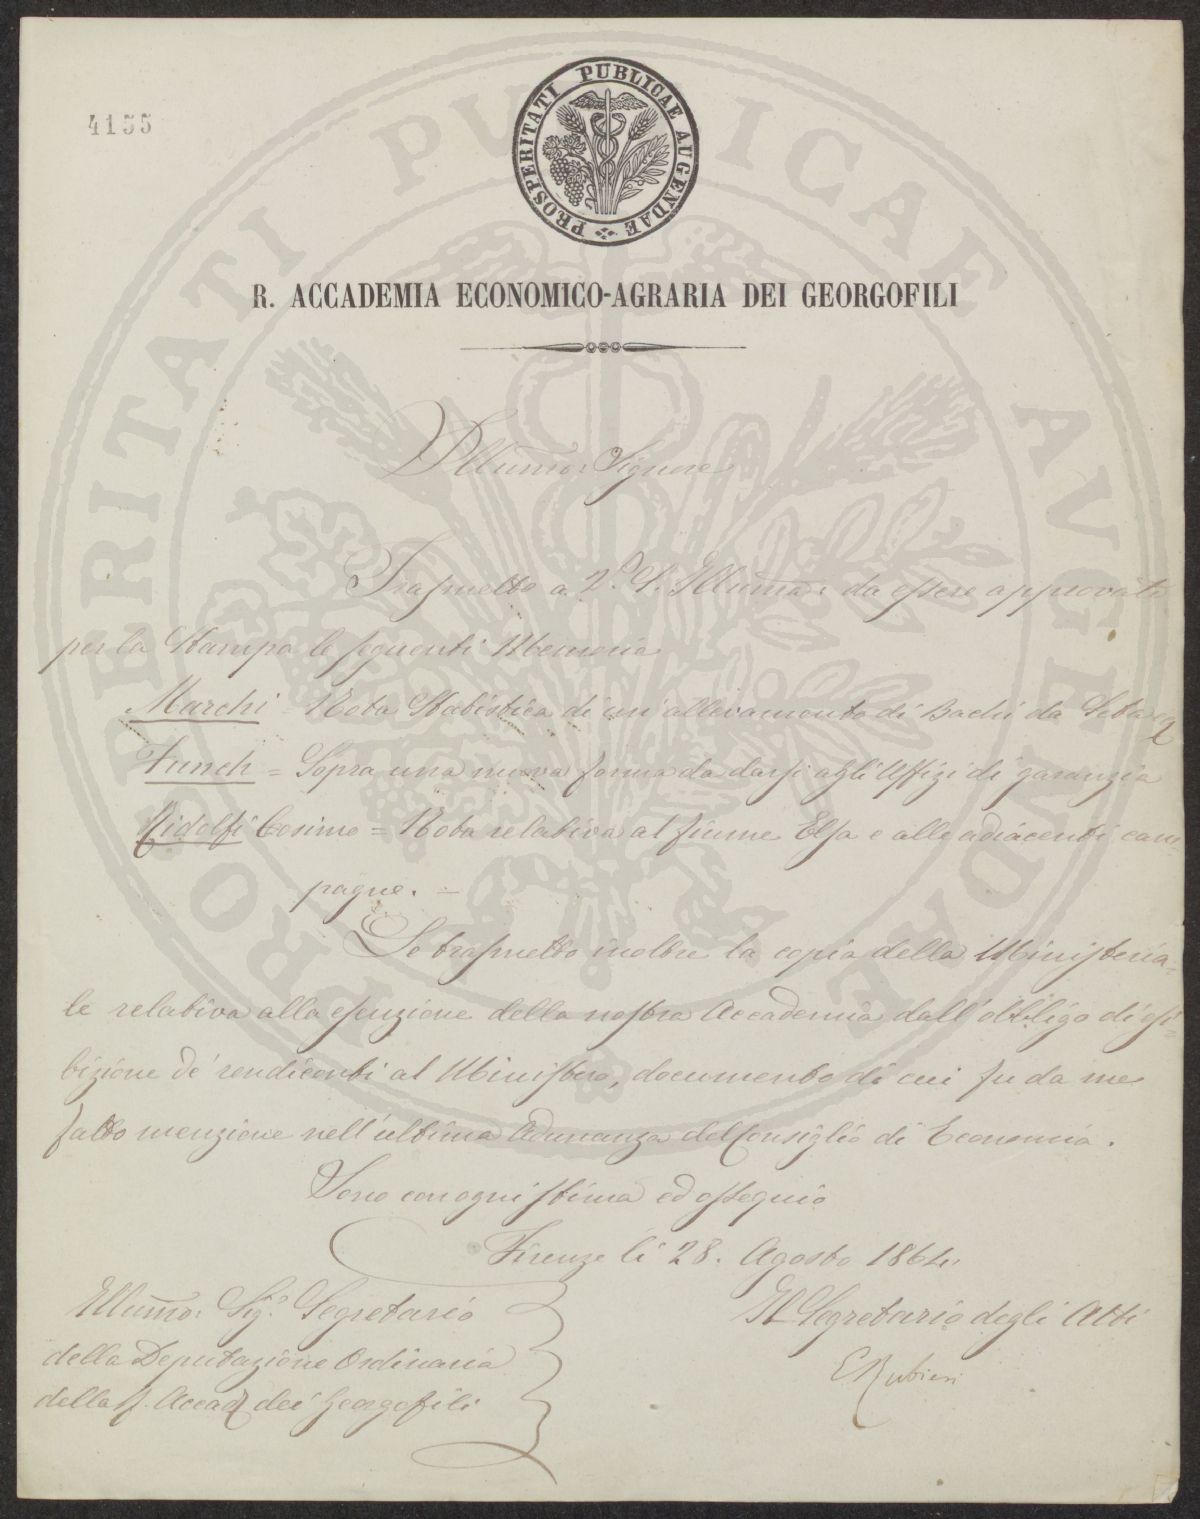 4155
PROSPERITATI PUBLICAE AUGENDAE
R. ACCADEMIA ECONOMICO-AGRARIA DEI GEORGOFILI
Illumo: Signore
Trasmetto a V.S. Illuma: da essere approvate
per la Stampa le seguenti Memorie
Marchi = Nota Statistica di un' allevamento di Bachi da Seta
Funch = Sopra una nuova forma da darsi agli Uffizi di garanzia
Ridolfi Cosimo = Nota relativa al fiume Elsa e alle adiacenti cam-
pagne. =
Le trasmetto inoltre la copia della Ministeria-
le relativa alla esenzione della nostra Accademia dall' obbligo di esi-
bizione de' rendiconti al Ministero, documento di cui fu da me
fatto menzione nell' ultima Adunanza del Consiglio di Economia.
Sono con ogni stima ed ossequio
Firenze li 28. Agosto 1864.
Illumo: Sigr. Segretario
della Deputazione Ordinaria
della R. Accad. dei Georgofili
Il Segretario degli Atti
E Rubieri